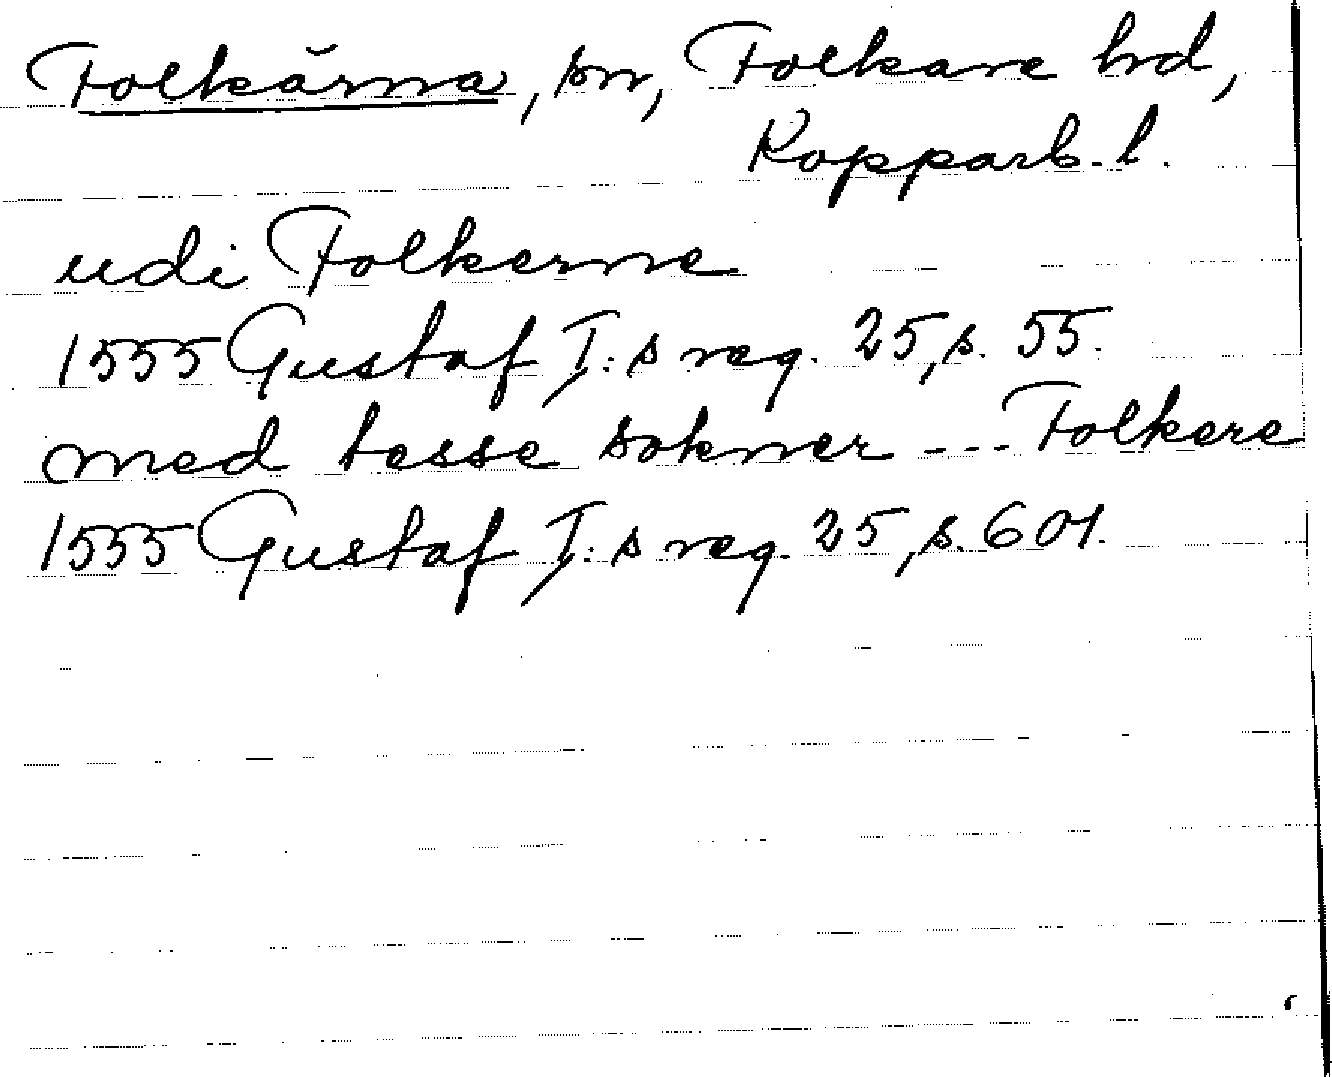 Folkärna, sn, Folkare hrd,
Kopparb. l.
udi Folkerne
1555 Gustaf I:s reg. 25, s. 55.
med tesse sokner --- Folkere
1555 Gustaf I:s reg. 25, s. 601.